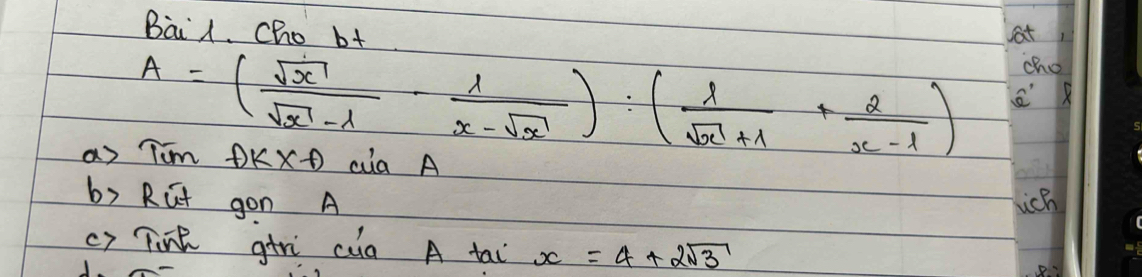 Bài 1. Cho bt
A = (√x / (√x - 1) - 1 / (x - √x)) : (1 / (√x + 1) + 2 / (x - 1))
a> Tìm ĐKXĐ của A
b> Rút gọn A
c> Tính gtri của A tại x = 4 + 2√3
cho